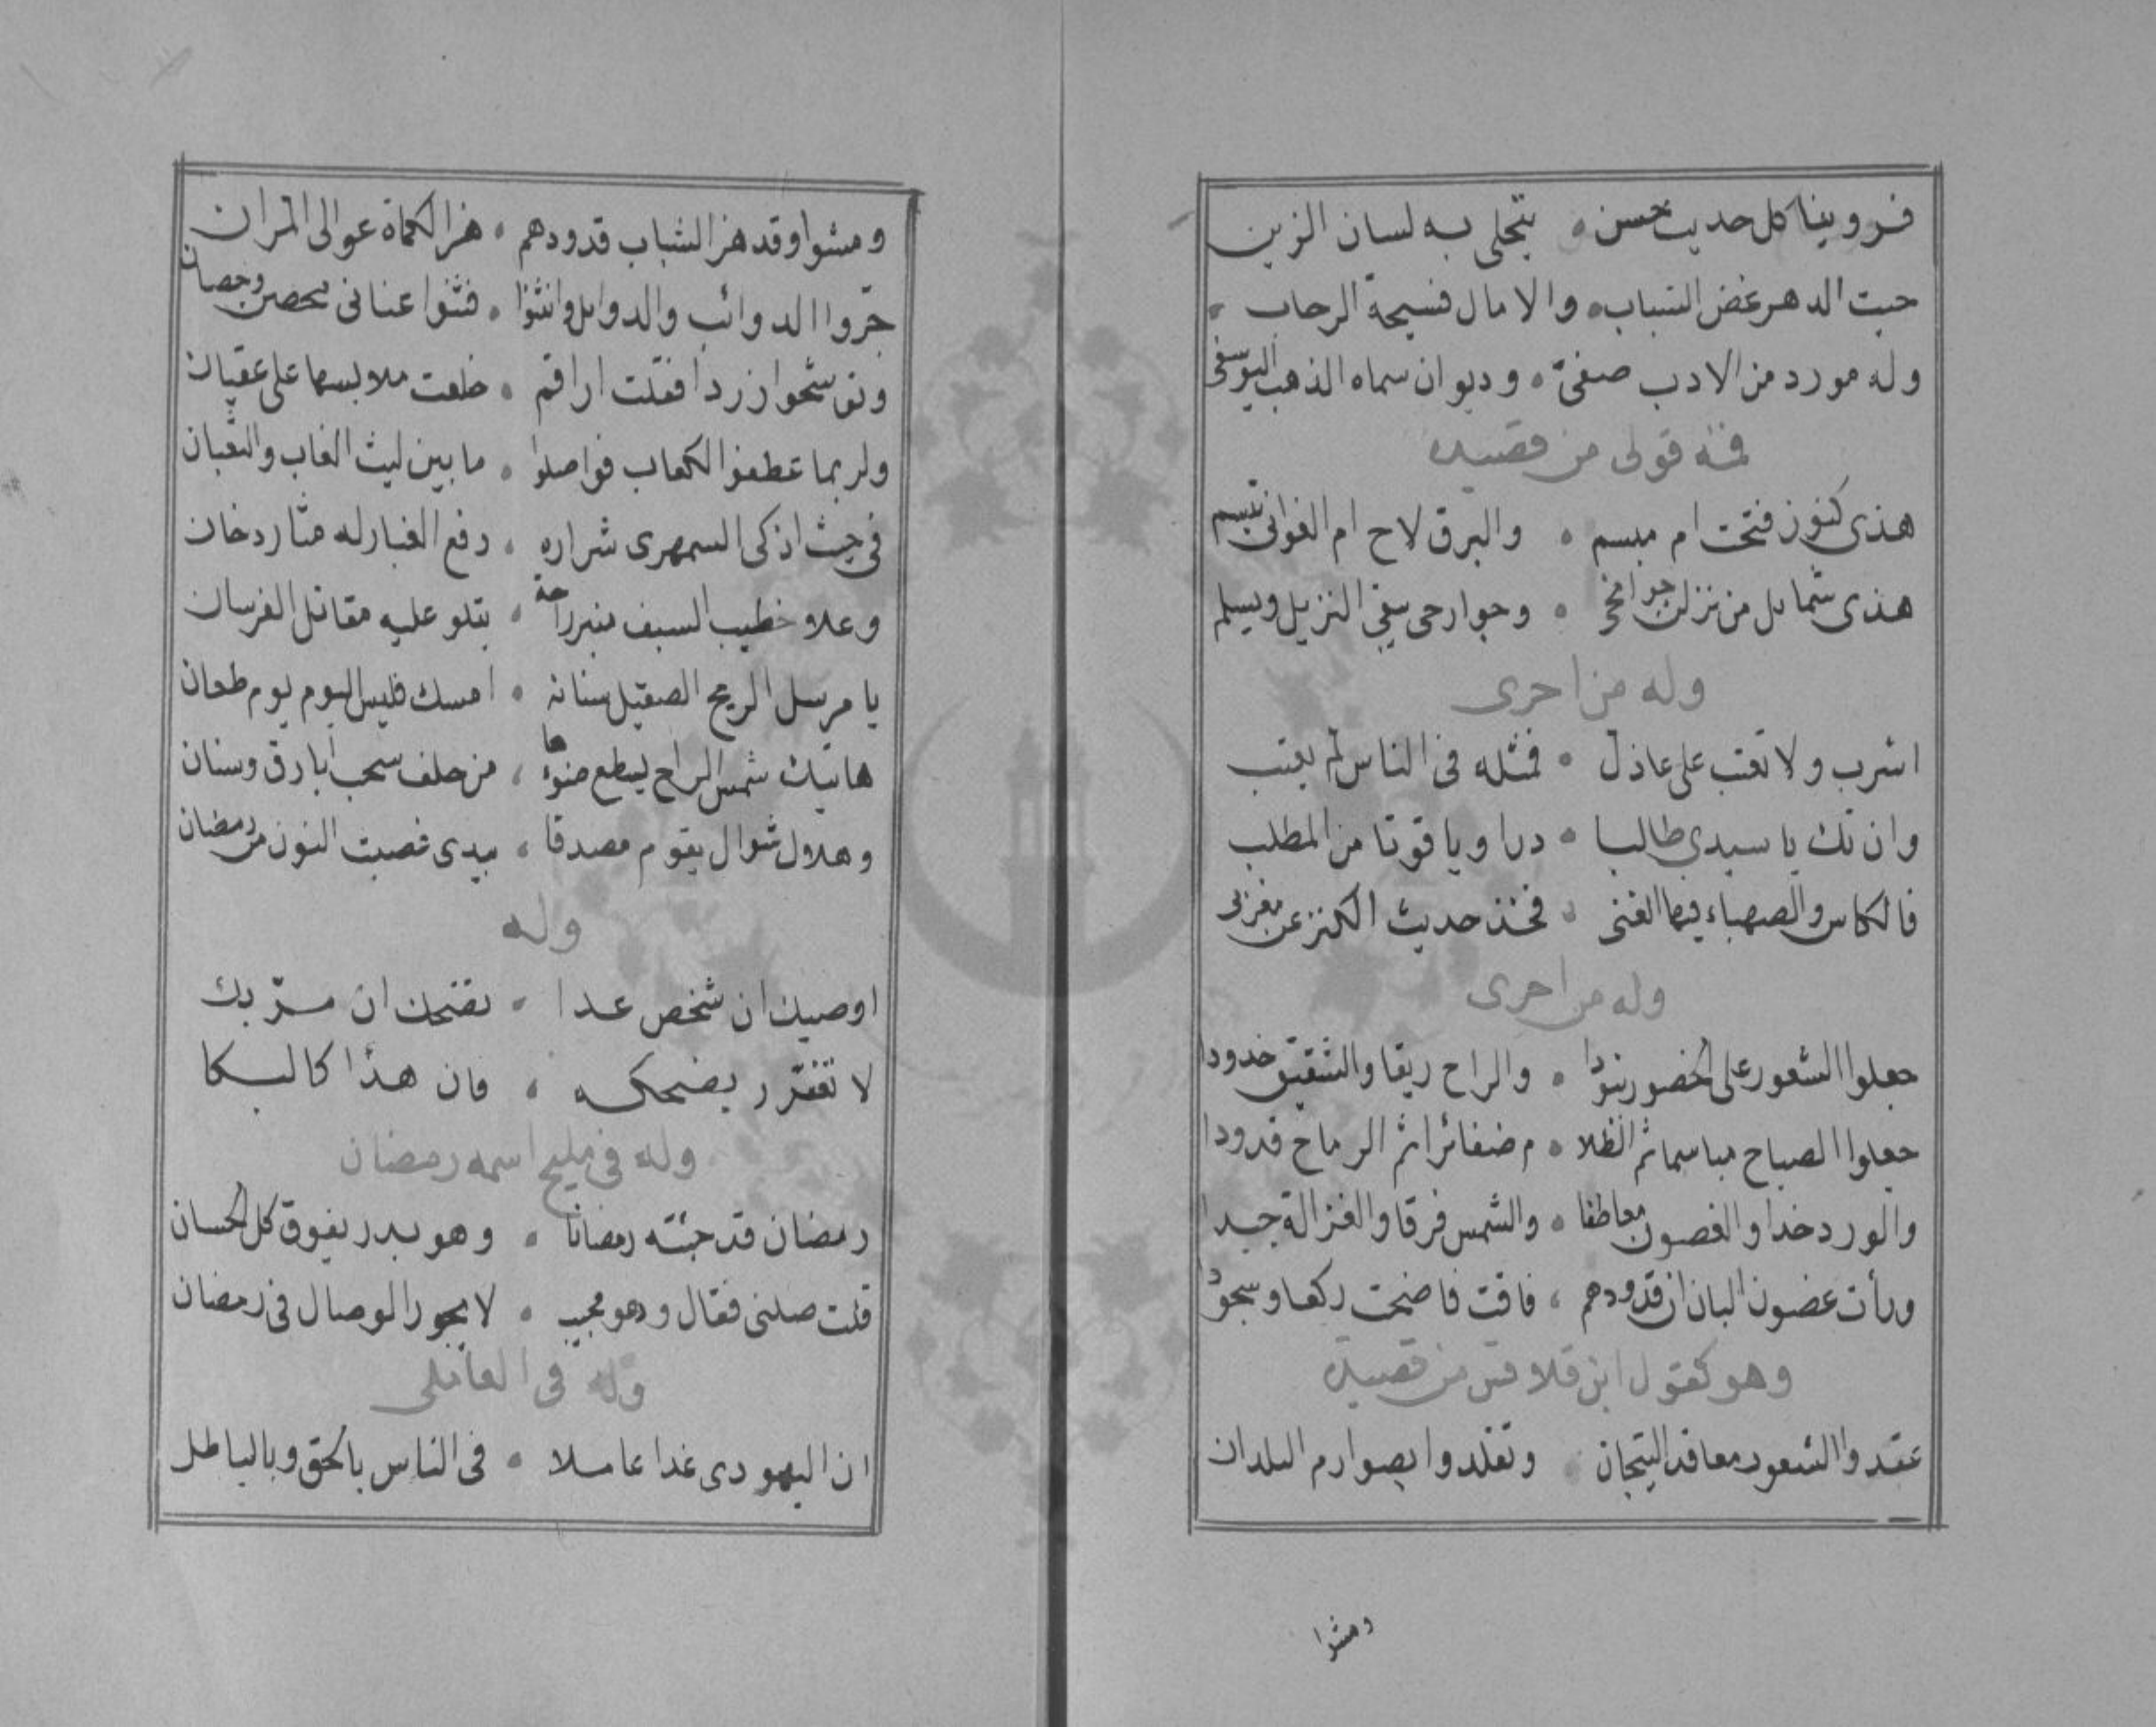 فروينا كل حديث حسن • يتحلى به لسان الزين
حيث الدهر غض الشباب • والامال فسيحة الرحاب •
وله مورد من الادب صفىّ • وديوان سماه الذهب اليوسفى
فمنه قولى من قصيده
هذى كنوز فتحت ام مبسم • والبرق لاح ام الغوانى تبسم
هذى شمائل من نزلن جوانحى • وجوار حى يبقى النزيل ويسلم
وله من اخرى
اشرب ولا تعتب على عاذل • فمثله فى الناس لم يعتب
وان تك يا سيدى طالبا • درا وياقوتا من المطلب
فالكاس والصهباء فيها الغنى • فخذ حديث الكنز عن مغربى
وله من اخرى
جعلوا الشعور على الخصور بنودا • والراح ريقا والشقيق خدودا
جعلوا الصباح مباسما ثم الظلا • م ضفائرا ثم الرماح قدودا
والورد خدا والغصون معاطفا • والشمس فرقا والغزالة جيدا
ورأت غضون البان ان قدودهم • فاقت فاضحت ركعا وسجودا
وهو كقول ابن قلاقس من قصيدة
عقدوا الشعور معاقد التيجان • وتقلدوا بصوارم البلدان
ومشوا
ومشوا وقد هز الشباب قدودهم • هز الكماة عوالى المران
جرّوا الذوائب والدوابل وانثنوا • فثنوا عنانى محصن وحصان
وتوشحوا زردا فقلت اراقم • خلعت ملابسها على عقبان
ولربما عطفوا الكعاب فواصلوا • ما بين ليث الغاب والثعبان
فى حيث اذكى السمهرى شراره • رفع الغبار له مثار دخان
وعلا خطيب السيف منبر راحة • يتلو عليه مقاتل الفرسان
يا مرسل الريح الصقيل سنانه • امسك فليس اليوم يوم طعان
هاتيك شمس الراح يسطع ضوءها • من خلف سحب ابارق وسنان
وهلال شوال يقوم مصدقا • بيدى غصبت النون من رمضان
وله
اوصيك ان شخص غدا • يضحك ان مرّ بك
لا تغترر بضحكه • فان هذا كالبكا
وله فى مليح اسمه رمضان
رمضان قد جئته رمضانا • وهو بدر يفوق كل الحسان
قلت صلنى فقال وهو مجيب • لا يجوز الوصال فى رمضان
وله فى العاملى
ان اليهودى غدا عاملا • فى الناس بالحق وبالباطل